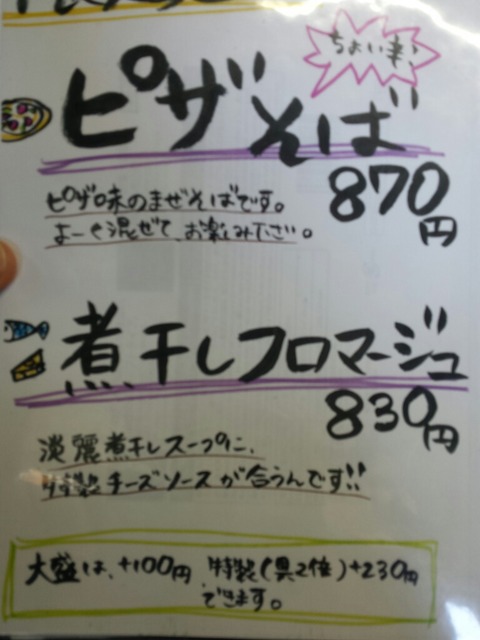 ちょい辛
ピザそば
870円
ピザ味のまぜそばです。
よーく混ぜて、お楽しみ下さい。
煮干しフロマージュ
830円
淡麗煮干しスープに、
特製チーズソースが合うんです!!
大盛は、+100円 特製(具2倍)+230円
できます。